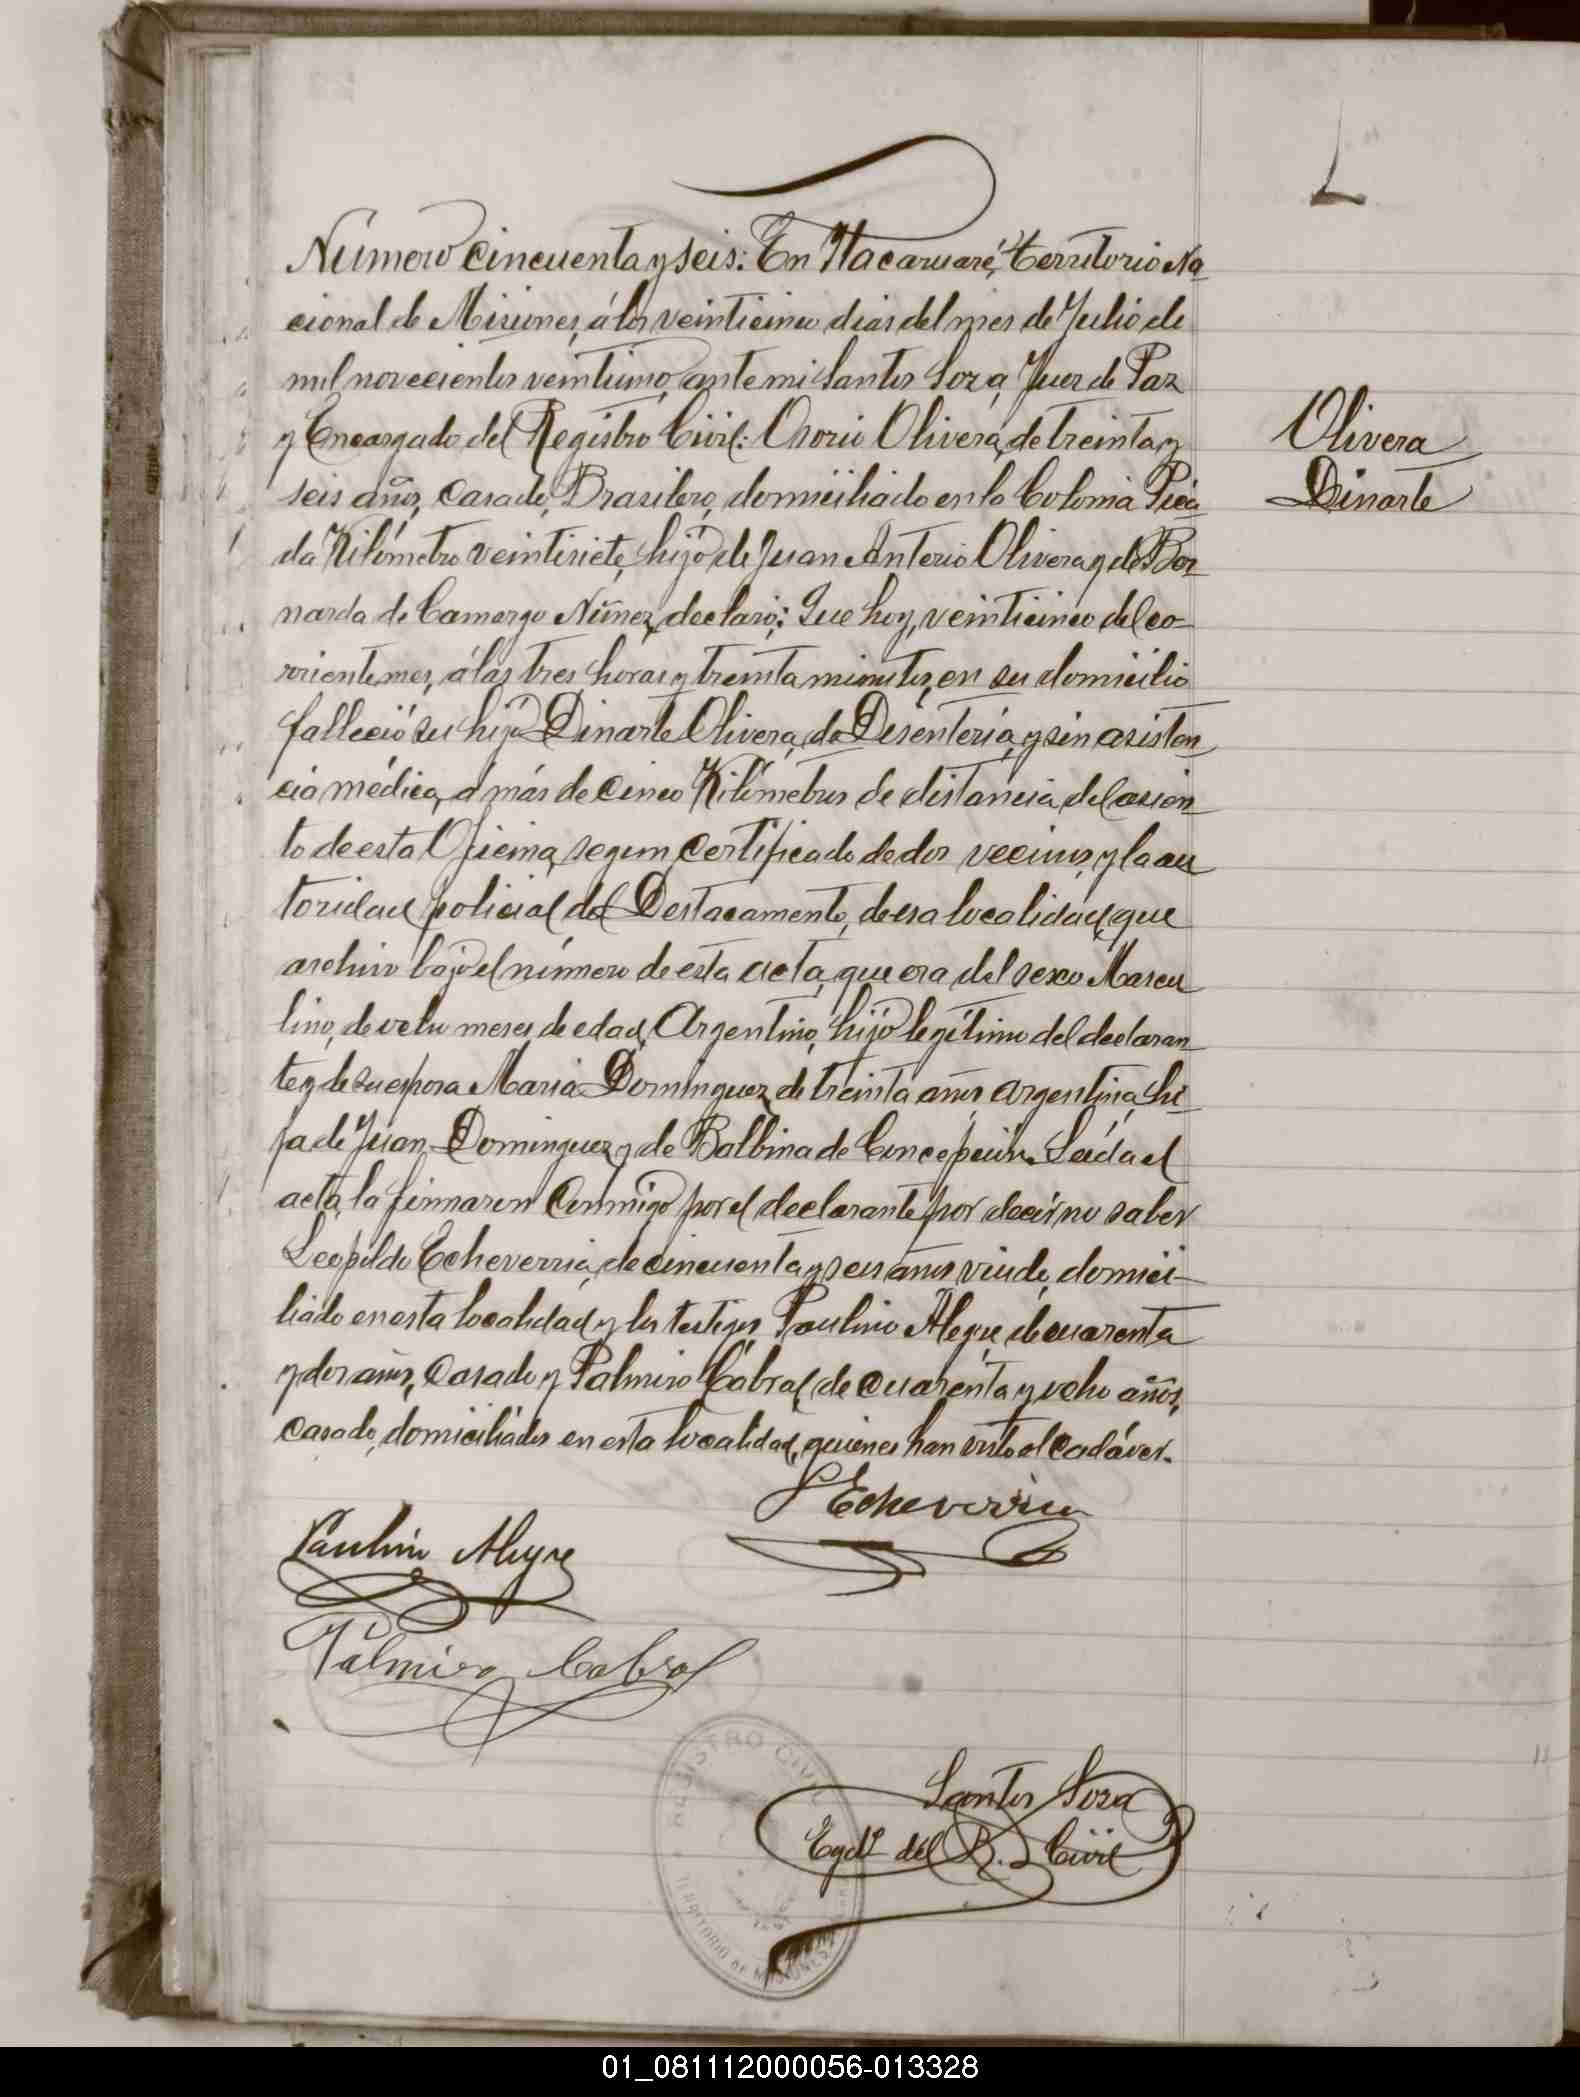 L
Número cincuenta y seis: En Itacaruaré, territorio Na-
cional de Misiones, á los veinticinco dias del mes de Julio de
mil novecientos veintiuno, ante mi Santos Soza, Juez de Paz
y Encargado del Registro Civil: Osorio Olivera, de treinta y
seis años, Casado, Brasilero, domiciliado en la Colonia Pica-
da Kilómetro veintisiete, hijo de Juan Anterio Olivera y de Ber-
narda de Camargo Núnez, declaró: Que hoy, veinticinco del co-
rriente mes, á las tres horas y treinta minutos, en su domicilio
falleció su hijo Dinarte Olivera, de Desentería, y sin asisten-
cia médica, á más de cinco Kilómetros de distancia del asien-
to de esta Oficina, segun certificado de dos vecinos, y la au
toridad policial del Destacamento, de esa localidad, que
archivo bajo el número de esta acta, que era del sexo Mascu
lino, de ocho meses de edad, Argentino, hijo legítimo del declaran-
te y de su esposa Maria Dominguez, de treinta años argentina, hi-
ja de Juan Dominguez y de Balbina de Concepción. Leída el
acta, la firmaron conmigo por el declarante por decir no saber
Leopoldo Echeverria, de cincuenta y seis años viudo, domici-
liado en esta localidad, y los testigos Paulino Alegre, de cuarenta
y dos años, Casado y Palmiro Cabral, de cuarenta y ocho años,
casado, domiciliados en esta localidad, quienes han visto el cadáver.
Olivera
Dinarte
L Echeverria
Paulino Alegre
Palmiro Cabral
REGISTRO CIVIL
TERRITORIO DE MISIONES
Santos Soza
Egdo del R. Civil
01_081112000056-013328